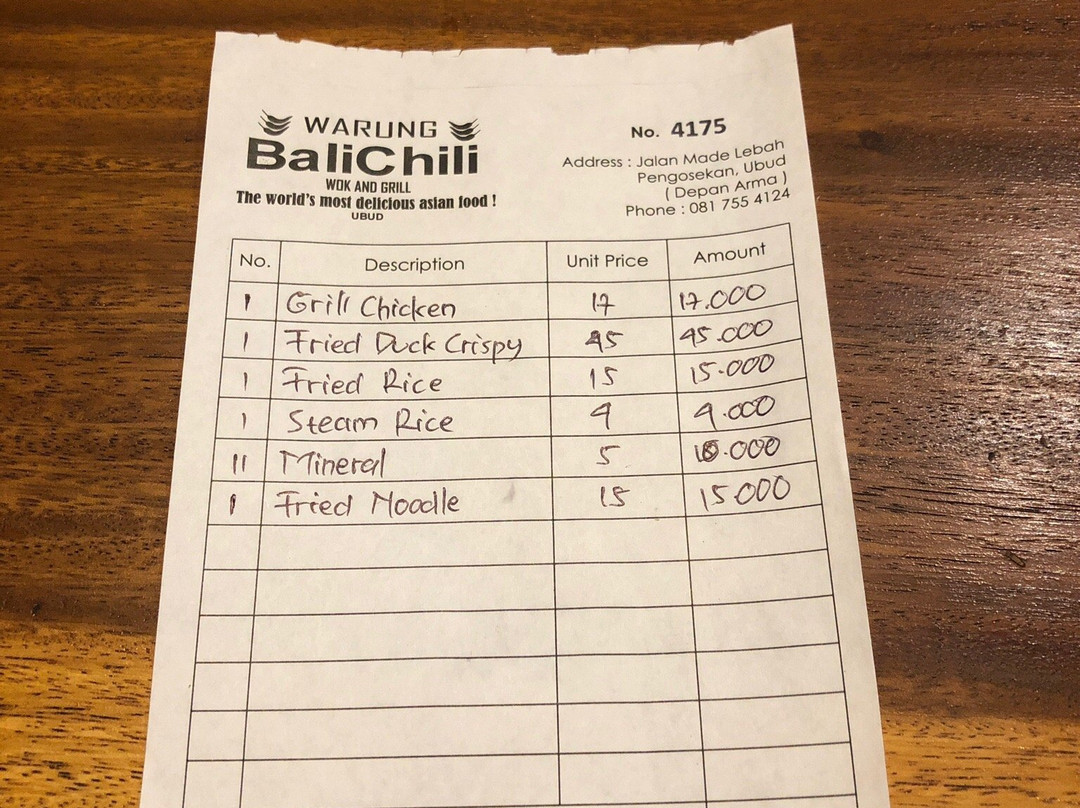 WARUNG
BaliChili
WOK AND GRILL
The world's most delicious asian food !
UBUD
No. 4175
Address : Jalan Made Lebah
Pengosekan, Ubud
( Depan Arma )
Phone : 081 755 4124
No. Description Unit Price Amount
1 Grill Chicken 17 17.000
1 Fried Duck Crispy 45 45.000
1 Fried Rice 15 15.000
1 Steam Rice 4 4.000
11 Mineral 5 10.000
1 Fried Noodle 15 15000